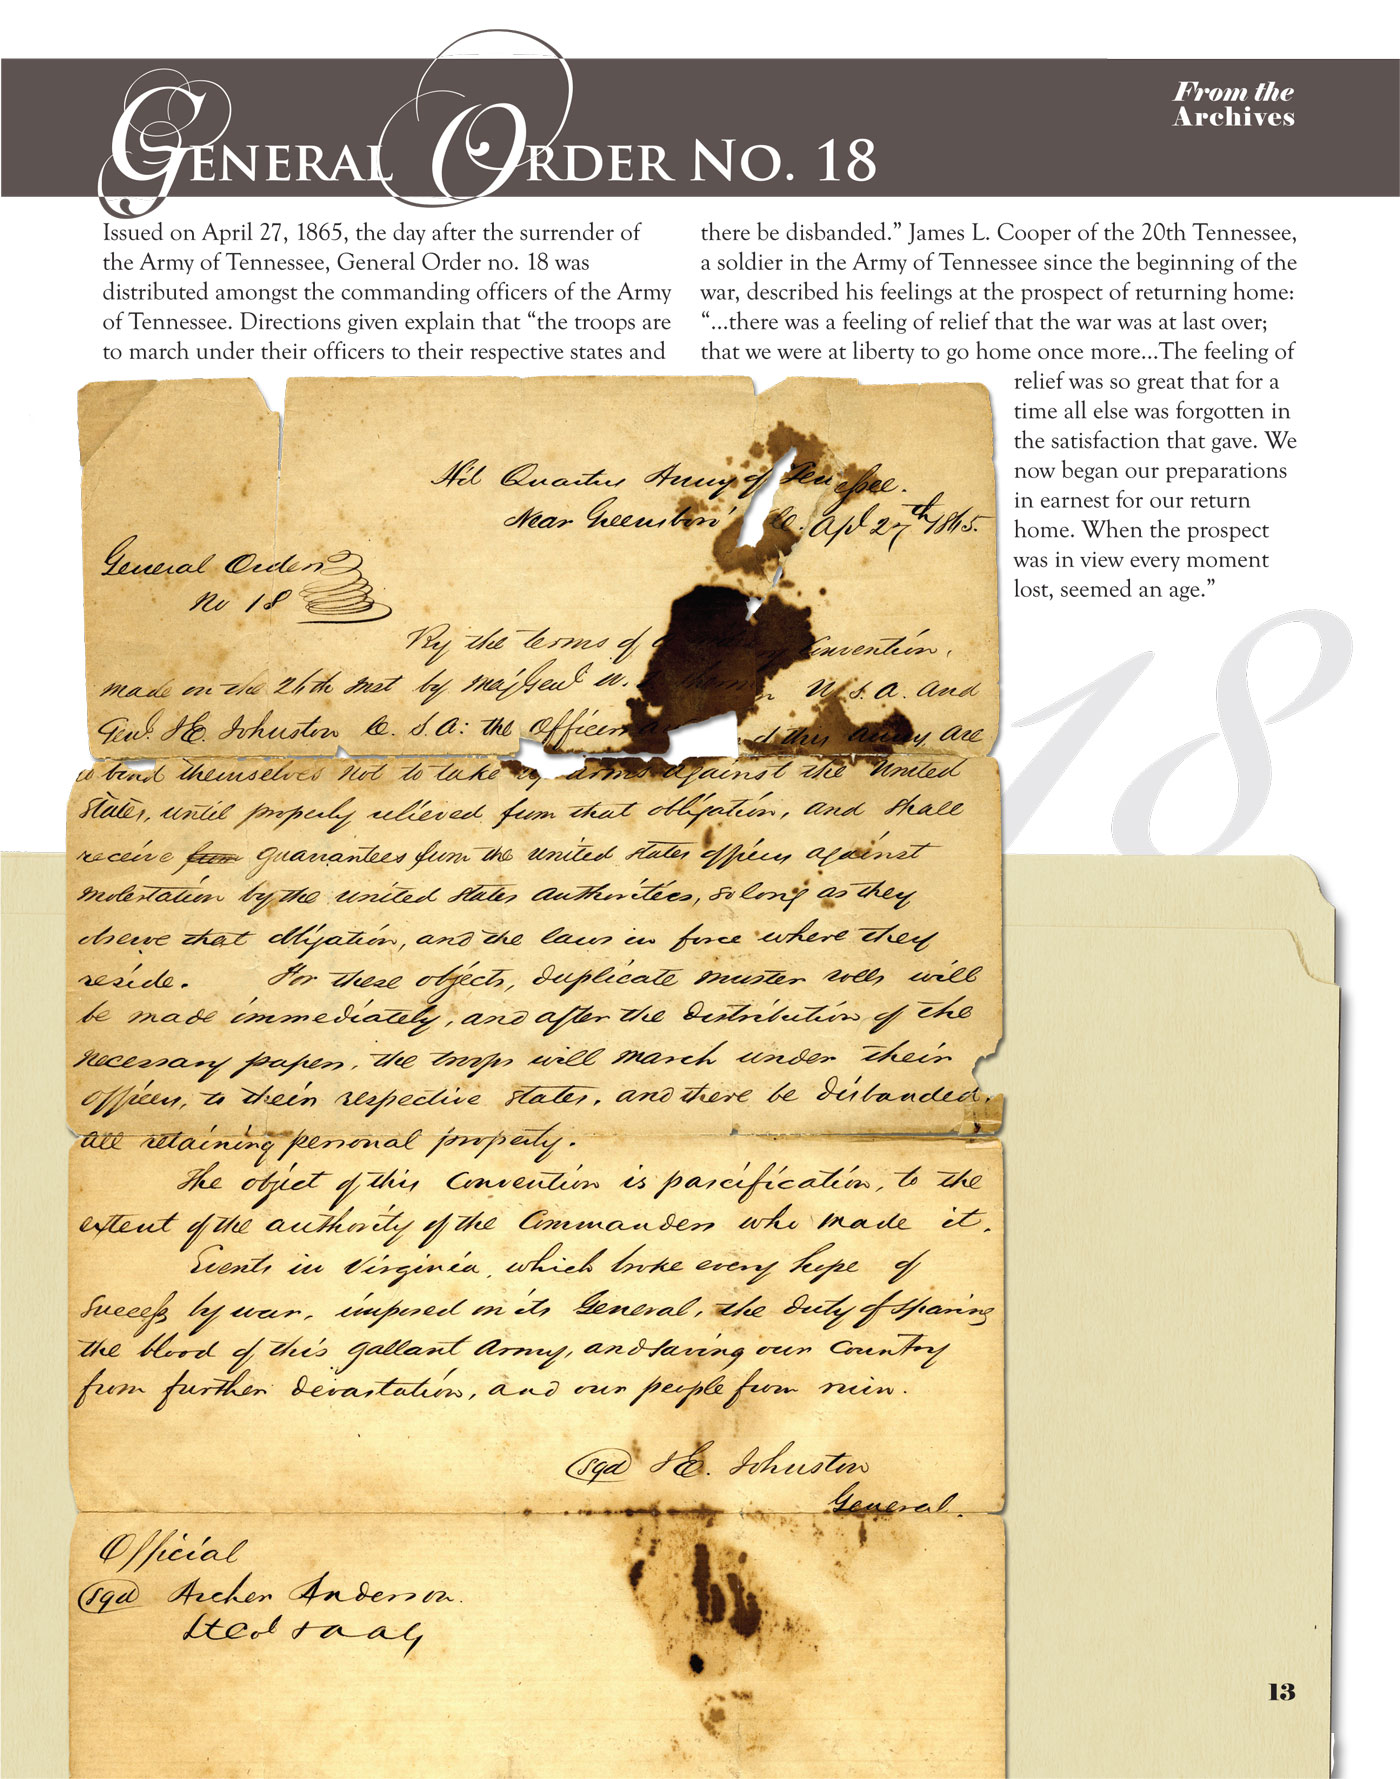 From the
Archives
General Order No. 18
Issued on April 27, 1865, the day after the surrender of
the Army of Tennessee, General Order no. 18 was
distributed amongst the commanding officers of the Army
of Tennessee. Directions given explain that “the troops are
to march under their officers to their respective states and
there be disbanded.” James L. Cooper of the 20th Tennessee,
a soldier in the Army of Tennessee since the beginning of the
war, described his feelings at the prospect of returning home:
“...there was a feeling of relief that the war was at last over;
that we were at liberty to go home once more...The feeling of
relief was so great that for a
time all else was forgotten in
the satisfaction that gave. We
now began our preparations
in earnest for our return
home. When the prospect
was in view every moment
lost, seemed an age.”
18
Hd Quarters Army of Tennessee.
Near Greensboro' C. Apl 27th 1865.
General Order
No 18
By the terms of a Convention,
made on the 26th inst by Maj Genl W. U.S.A. and
Genl. J.E. Johnston C.S.A: the Officers this army are
to bind themselves not to take up arms against the United
States, until properly relieved from that obligation, and shall
receive guarantees from the United States officers against
molestation by the United States authorities, so long as they
observe that obligation, and the laws in force where they
reside. For these objects, duplicate muster rolls will
be made immediately, and after the distribution of the
necessary papers, the troops will march under their
officers, to their respective States, and there be disbanded,
all retaining personal property.
The object of this Convention is pacification, to the
extent of the authority of the Commanders who made it.
Events in Virginia, which broke every hope of
success by war, imposed on its General, the duty of sparing
the blood of this gallant Army, and saving our Country
from further devastation, and our people from ruin.
(sgd) J.E. Johnston
General.
Official
(sgd) Archer Anderson.
Lt Col & A A G
13